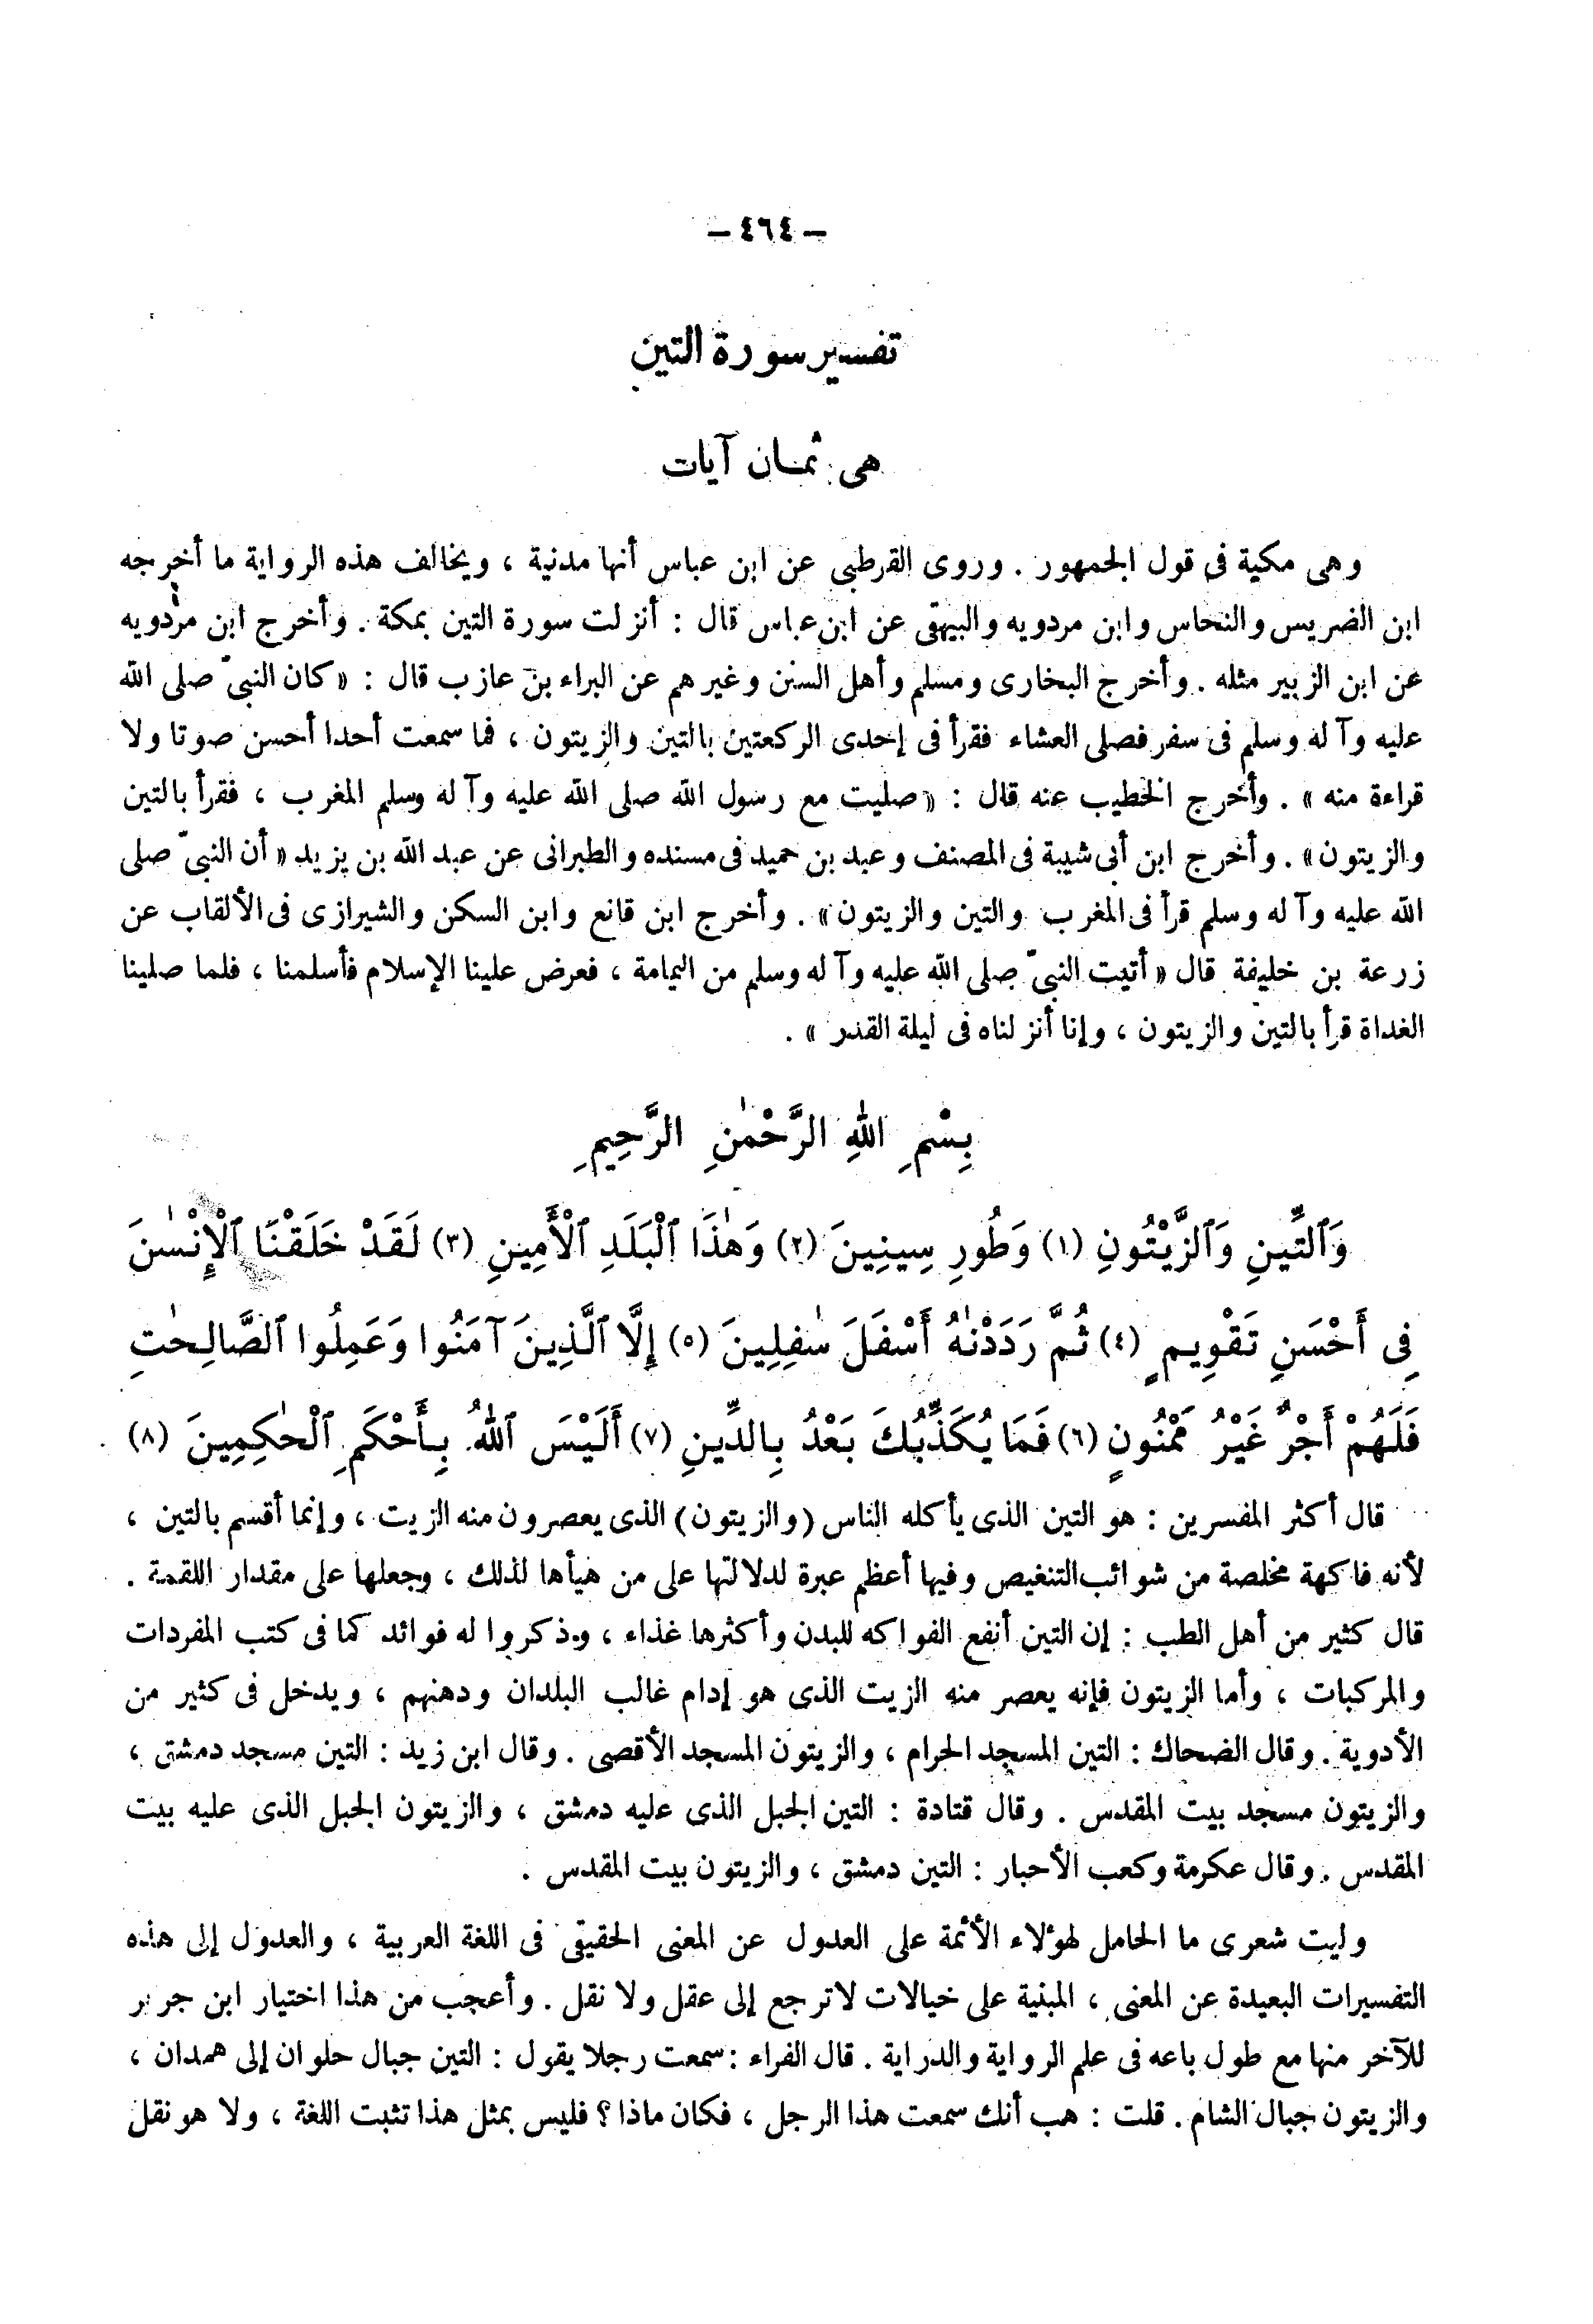 – ٤٦٤ –
تفسير سورة التين
هى ثمـان آيات
وهى مكية فى قول الجمهور . وروى القرطبى عن ابن عباس أنها مدنية ، ويخالف هذه الرواية ما أخرجه
ابن الضريس والنحاس وابن مردويه والبيهقى عن ابن عباس قال : أنزلت سورة التين بمكة . وأخرج ابن مردويه
عن ابن الزبير مثله . وأخرج البخارى ومسلم وأهل السنن وغيرهم عن البراء بن عازب قال : « كان النبىّ صلى الله
عليه وآله وسلم فى سفر فصلى العشاء فقرأ فى إحدى الركعتين بالتين والزيتون ، فما سمعت أحدا أحسن صوتا ولا
قراءة منه » . وأخرج الخطيب عنه قال : « صليت مع رسول الله صلى الله عليه وآله وسلم المغرب ، فقرأ بالتين
والزيتون » . وأخرج ابن أبى شيبة فى المصنف وعبد بن حميد فى مسنده والطبرانى عن عبد الله بن يزيد « أن النبىّ صلى
الله عليه وآله وسلم قرأ فى المغرب والتين والزيتون » . وأخرج ابن قانع وابن السكن والشيرازى فى الألقاب عن
زرعة بن خليفة قال « أتيت النبىّ صلى الله عليه وآله وسلم من اليمامة ، فعرض علينا الإسلام فأسلمنا ، فلما صلينا
الغداة قرأ بالتين والزيتون ، وإنا أنزلناه فى ليلة القدر » .
بِسْمِ اللهِ الرَّحْمٰنِ الرَّحِيمِ
وَٱلتِّينِ وَٱلزَّيْتُونِ (١) وَطُورِ سِينِينَ (٢) وَهٰذَا ٱلْبَلَدِ ٱلْأَمِينِ (٣) لَقَدْ خَلَقْنَا ٱلْإِنْسٰنَ
فِى أَحْسَنِ تَقْوِيمٍ (٤) ثُمَّ رَدَدْنٰهُ أَسْفَلَ سٰفِلِينَ (٥) إِلَّا ٱلَّذِينَ آمَنُوا وَعَمِلُوا ٱلصَّالِحٰتِ
فَلَهُمْ أَجْرٌ غَيْرُ مَمْنُونٍ (٦) فَمَا يُكَذِّبُكَ بَعْدُ بِالدِّينِ (٧) أَلَيْسَ ٱللهُ بِأَحْكَمِ ٱلْحٰكِمِينَ (٨)
قال أكثر المفسرين : هو التين الذى يأكله الناس (والزيتون) الذى يعصرون منه الزيت ، وإنما أقسم بالتين ،
لأنه فاكهة مخلصة من شوائب التنغيص وفيها أعظم عبرة لدلالتها على من هيأها لذلك ، وجعلها على مقدار اللقمة .
قال كثير من أهل الطب : إن التين أنفع الفواكه للبدن وأكثرها غذاء ، وذكروا له فوائد كما فى كتب المفردات
والمركبات ، وأما الزيتون فإنه يعصر منه الزيت الذى هو إدام غالب البلدان ودهنهم ، ويدخل فى كثير من
الأدوية . وقال الضحاك : التين المسجد الحرام ، والزيتون المسجد الأقصى . وقال ابن زيد : التين مسجد دمشق ،
والزيتون مسجد بيت المقدس . وقال قتادة : التين الجبل الذى عليه دمشق ، والزيتون الجبل الذى عليه بيت
المقدس . وقال عكرمة وكعب الأحبار : التين دمشق ، والزيتون بيت المقدس .
وليت شعرى ما الحامل لهؤلاء الأئمة على العدول عن المعنى الحقيقى فى اللغة العربية ، والعدول إلى هذه
التفسيرات البعيدة عن المعنى ، المبنية على خيالات لا ترجع إلى عقل ولا نقل . وأعجب من هذا اختيار ابن جرير
للآخر منها مع طول باعه فى علم الرواية والدراية . قال الفراء : سمعت رجلا يقول : التين جبال حلوان إلى همدان ،
والزيتون جبال الشام . قلت : هب أنك سمعت هذا الرجل ، فكان ماذا ؟ فليس بمثل هذا تثبت اللغة ، ولا هو نقل